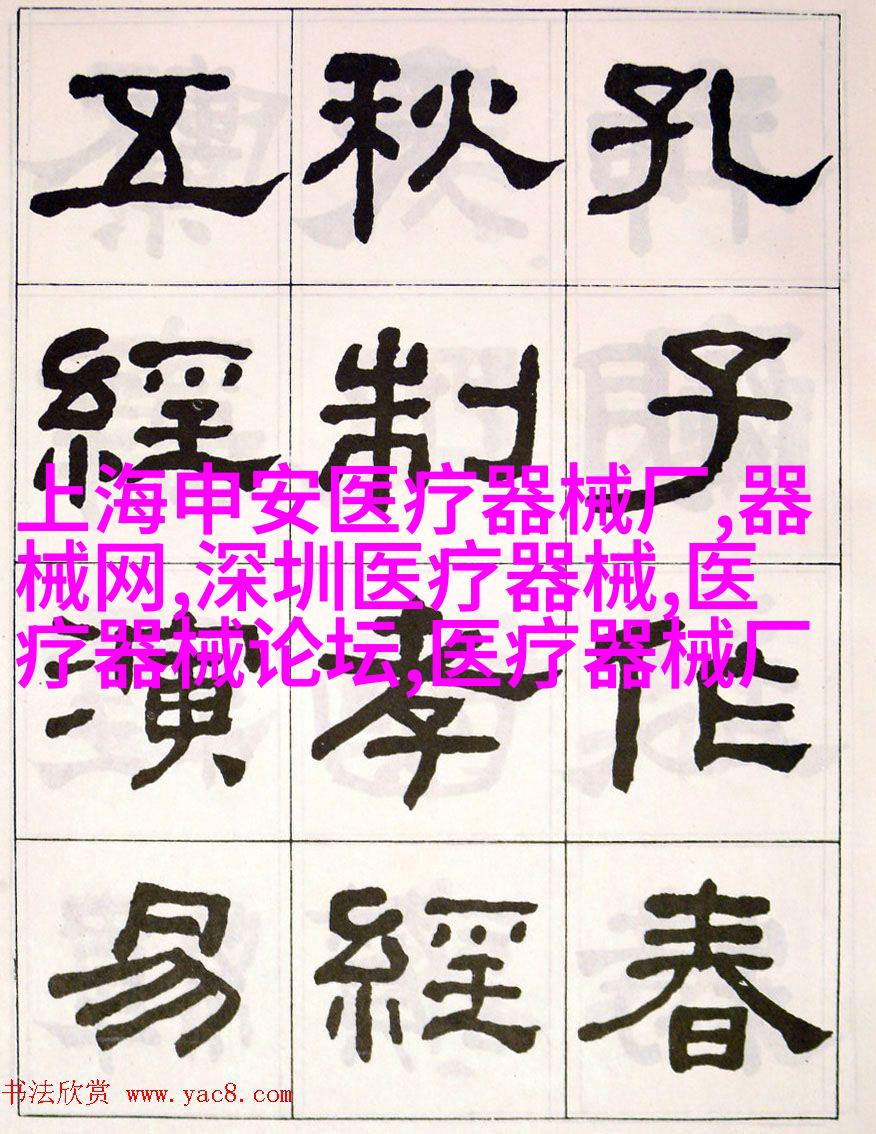 孔子作春
秋制孝經
五經演易
上海申安医疗器械厂,器
械网,深圳医疗器械,医
疗器械论坛,医疗器械厂
书法欣赏 www.yac8.com